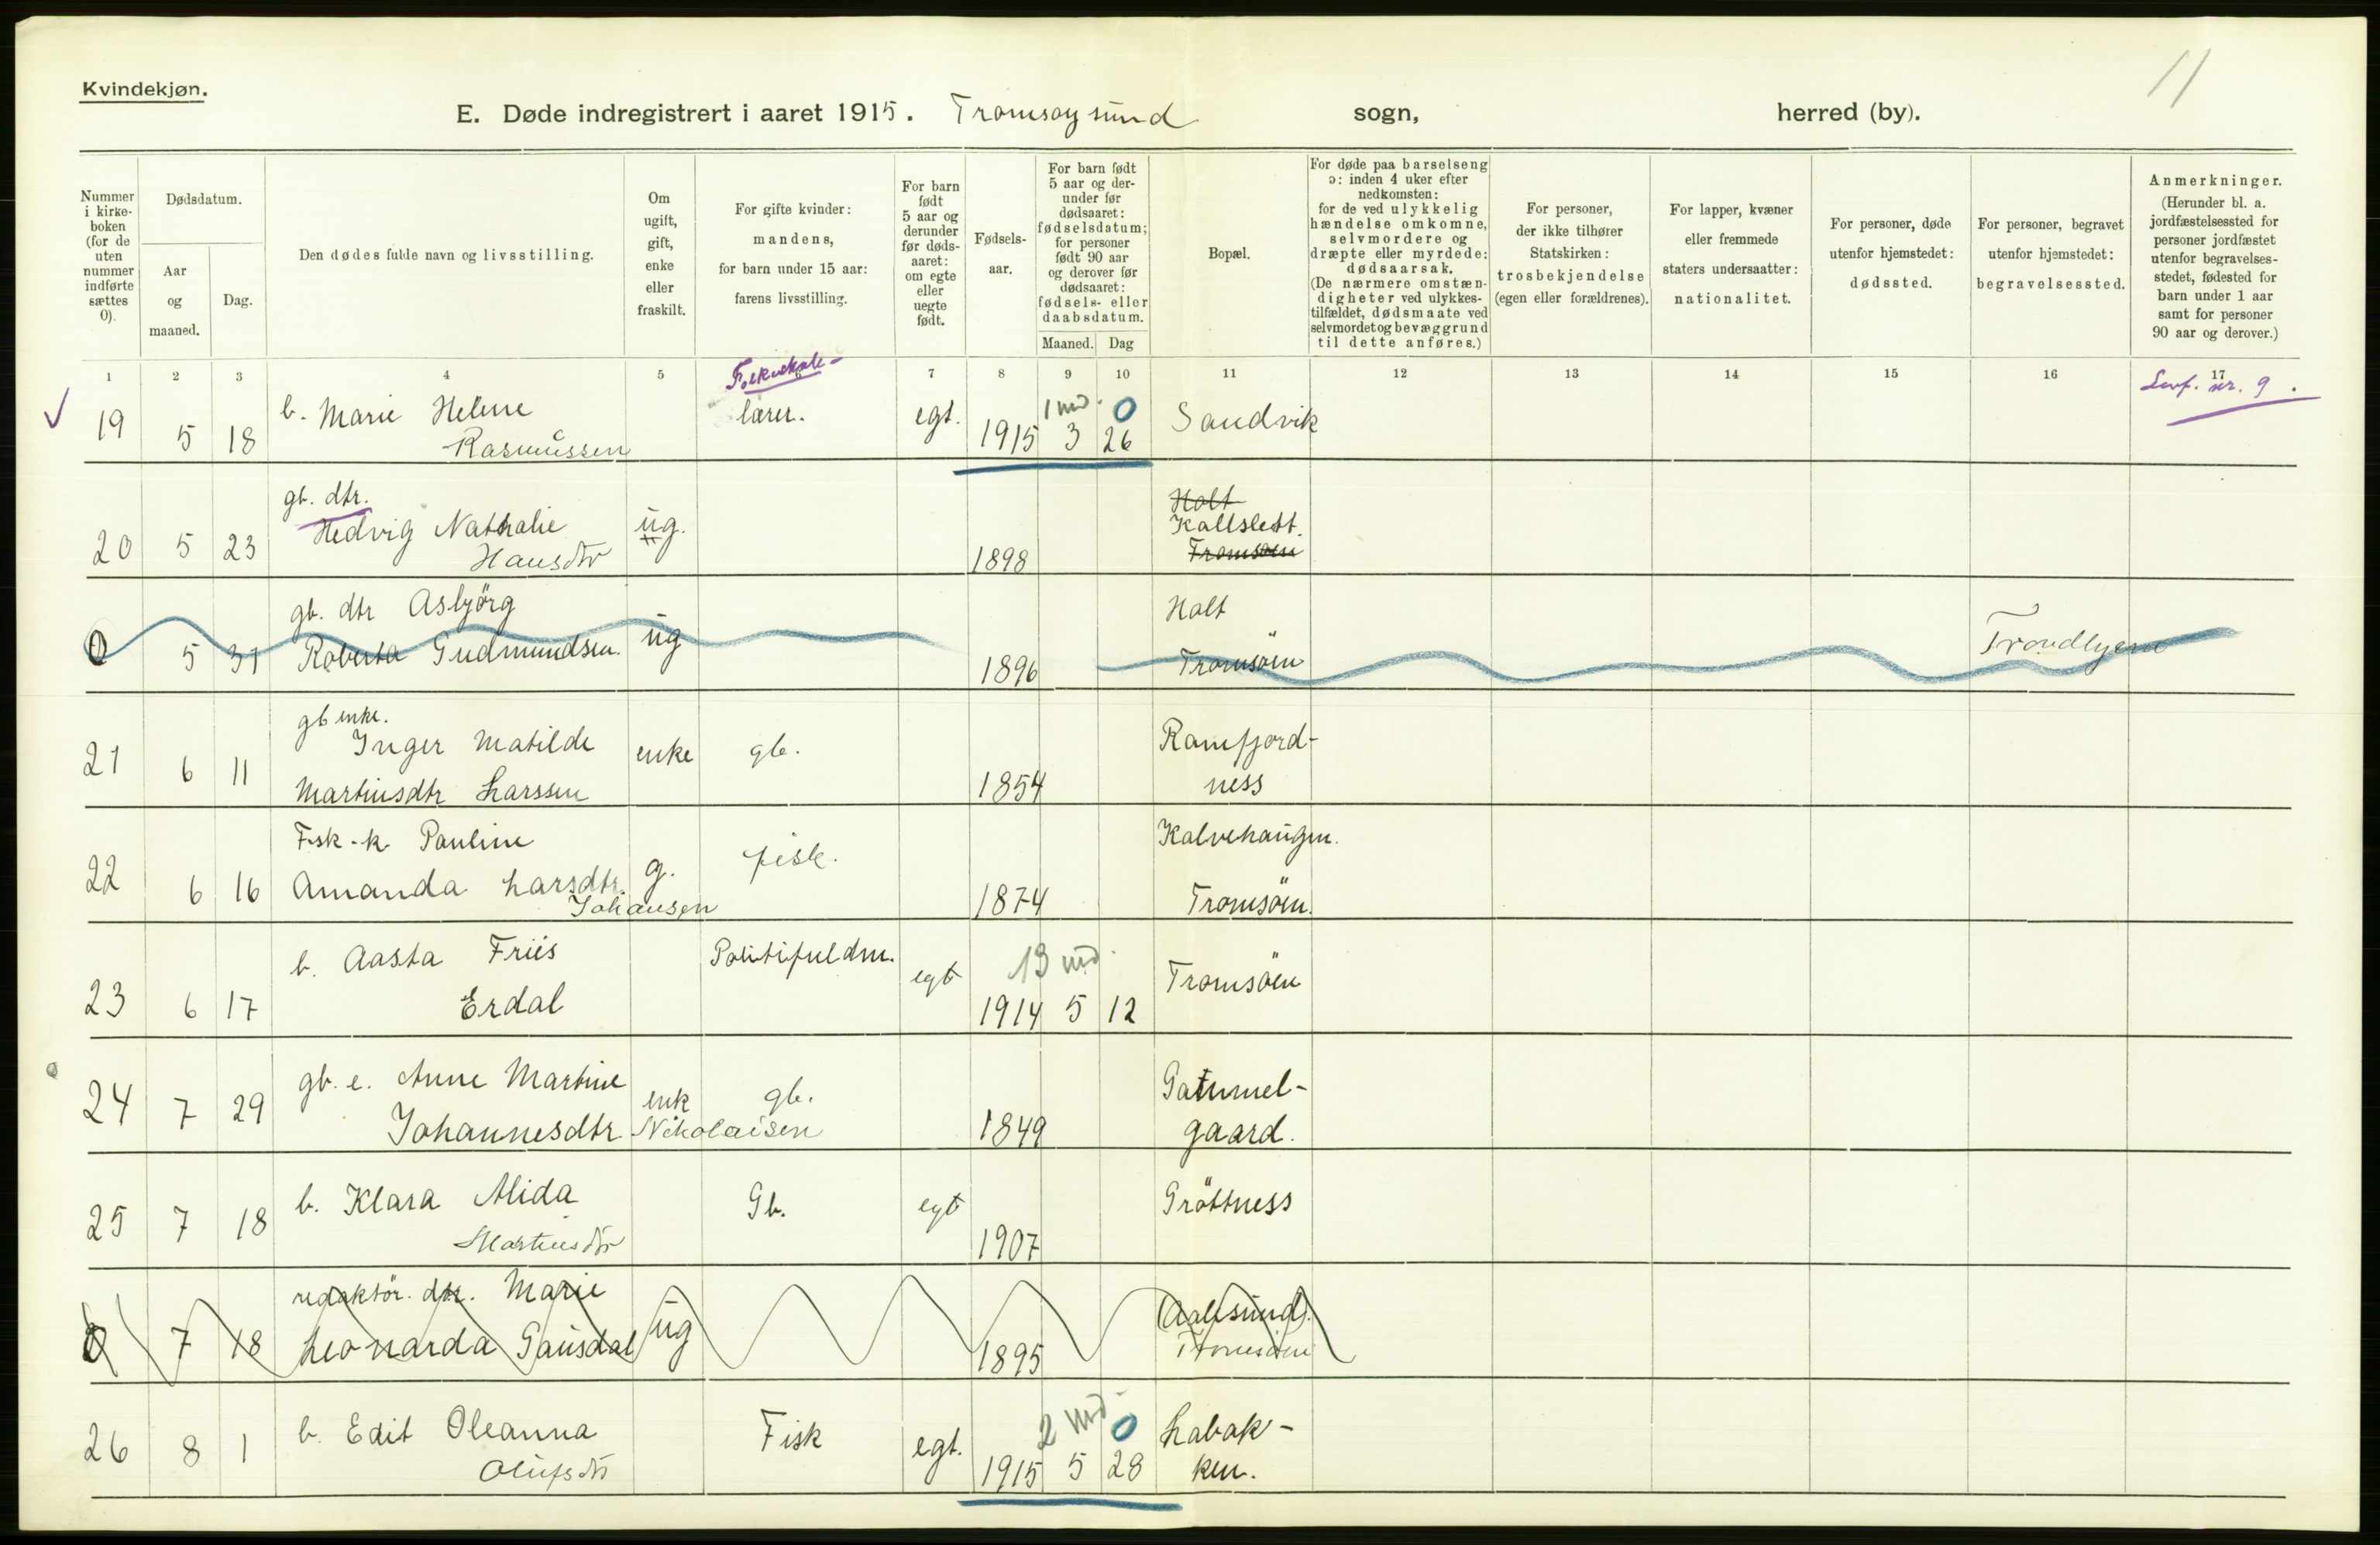 11
Kvindekjøn.
E. Døde indregistrert i aaret 1915. Tromsøysund sogn, herred (by).
Nummer i kirke-boken (for de uten nummer indførte sættes 0).
Dødsdatum.
Aar og maaned.
Dag.
Den dødes fulde navn og livsstilling.
Om ugift, gift, enke eller fraskilt.
For gifte kvinder: mandens, for barn under 15 aar: farens livsstilling.
For barn født 5 aar og derunder før døds-aaret: om egte eller uegte født.
Fødsels-aar.
For barn født 5 aar og der-under før dødsaaret: fødselsdatum; for personer født 90 aar og derover før dødsaaret: fødsels- eller daabsdatum.
Maaned. Dag
Bopæl.
For døde paa barselseng ɔ: inden 4 uker efter nedkomsten: for de ved ulykkelig hændelse omkomne, selvmordere og dræpte eller myrdede: dødsaarsak. (De nærmere omstæn-digheter ved ulykkes-tilfældet, dødsmaate ved selvmordet og bevæggrund til dette anføres.)
For personer, der ikke tilhører Statskirken: trosbekjendelse (egen eller forældrenes).
For lapper, kvæner eller fremmede staters undersaatter: nationalitet.
For personer, døde utenfor hjemstedet: dødssted.
For personer, begravet utenfor hjemstedet: begravelsessted.
Anmerkninger. (Herunder bl. a. jordfæstelsessted for personer jordfæstet utenfor begravelses-stedet, fødested for barn under 1 aar samt for personer 90 aar og derover.)
1 2 3 4 5 6 7 8 9 10 11 12 13 14 15 16 17
Folkeskole-
nr. 9.
✓ 19 5 18 b. Marie Helene lærer. egt. 1 md. 0 Sandvik
Rasmussen 1915 3 26
gb. dtr. Holt
20 5 23 Hedvig Nathalie ug. Kallslett.
Hansdtr 1898 Tromsøen
gb. dtr Asbjörg Holt
0 5 31 Roberta Gudmundsen. ug 1896 Tromsöen Trondhjem
gb enke.
21 6 11 Inger Matilde enke gb. Ramfjord-
Martinsdtr Larssen 1854 ness
Fisk-k. Pauline fisk. Kalvehaugen.
22 6 16 Amanda Larsdtr. g. 1874 Tromsöen.
Johansen
b. Aasta Friis Politifuldm. egt 13 md. Tromsöen
23 6 17 Erdal 1914 5 12
gb. e. Anne Martine gb.
24 7 29 Johannesdtr enk 1849 gaard.
Nikolaisen
b. Klara Alida Gb. egt Gröttness
25 7 18 Martinsdtr 1907
redaktör. dtr. Marie (Aalesund).
0 7 18 Leonarda Gausdal ug 1895 Tromsöen
b. Edit Oleanna Fisk egt. 2 md 0 Labak-
26 8 1 Olufsdtr 1915 5 28 ken.